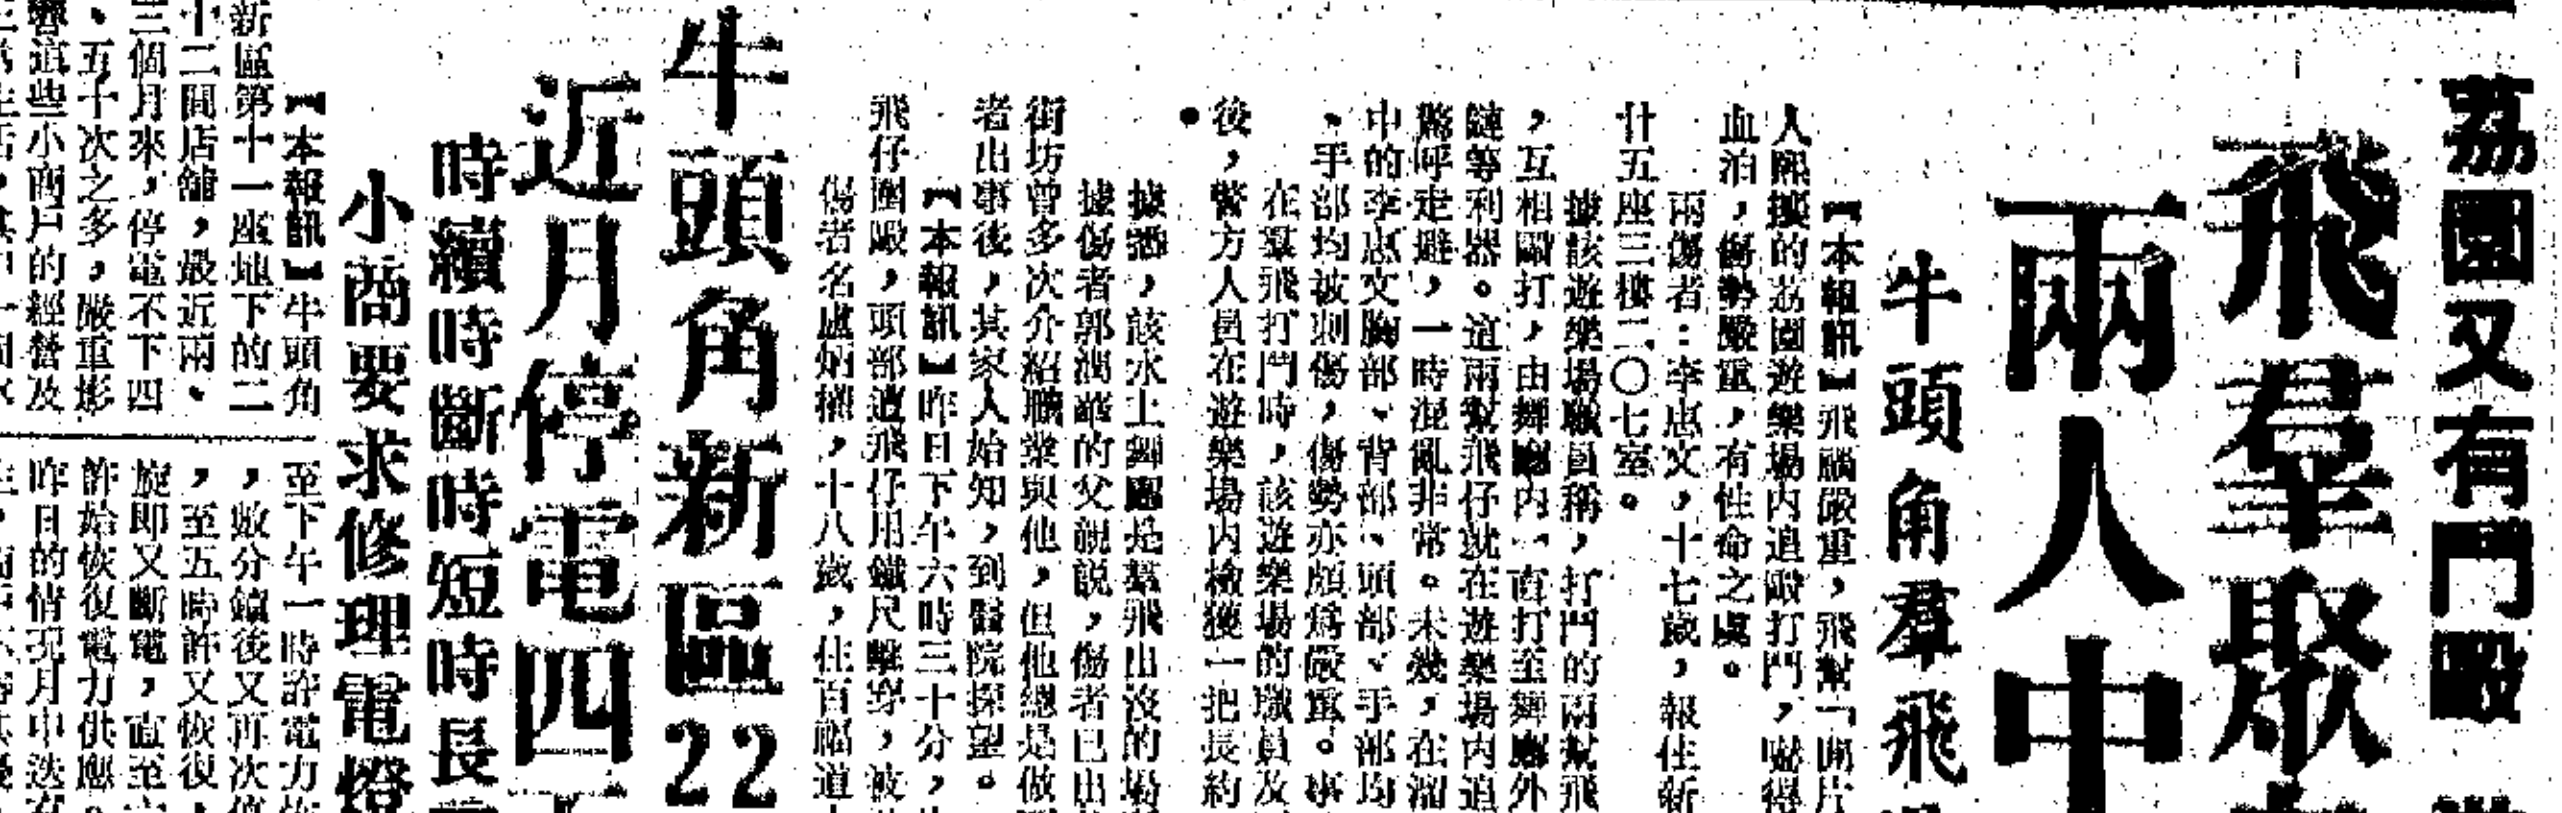 荔園又有鬥毆
飛羣聚
兩人中
牛頭角羣飛
【本報訊】飛禍嚴重,飛幫「開片
人熙攘的荔園遊樂場內追毆打鬥,
血泊,傷勢嚴重,有性命之虞。
兩傷者:李惠文,十七歲,報住新
廿五座三樓二〇七室。
據該遊樂場職員稱,打鬥的兩幫飛
,互相毆打,由舞廳內一直打至舞廳外
鏈等利器。這兩幫飛仔就在遊樂場內追
驚呼走避,一時混亂非常。未幾,在溜
中的李惠文胸部、背部、頭部、手部均
、手部均被刺傷,傷勢亦頗為嚴重。事
在羣飛打鬥時,該遊樂場的職員及
後,警方人員在遊樂場內檢獲一把長約
。
據悉,該水上舞廳是羣飛出沒的場
據傷者郭潤華的父親說,傷者已出
街坊曾多次介紹職業與他,但他總是做
者出事後,其家人始知,到醫院探望。
【本報訊】昨日下午六時三十分,
飛仔圍毆,頭部遭飛仔用鐵尺擊穿,被
傷者名盧炳權,十八歲,住百福道
牛頭角新區22
近月停電四
時續時斷時短時長
小商要求修理電燈
【本報訊】牛頭角
新區第十一座地下的二
十二間店舖,最近兩、
三個月來,停電不下四
、五十次之多,嚴重影
響這些小商戶的經營及
至下午一時許電力
,數分鐘後又再次停
,至五時許又恢復,
旋即又斷電,直至
許始恢復電力供應。
昨日的情況月中迭有